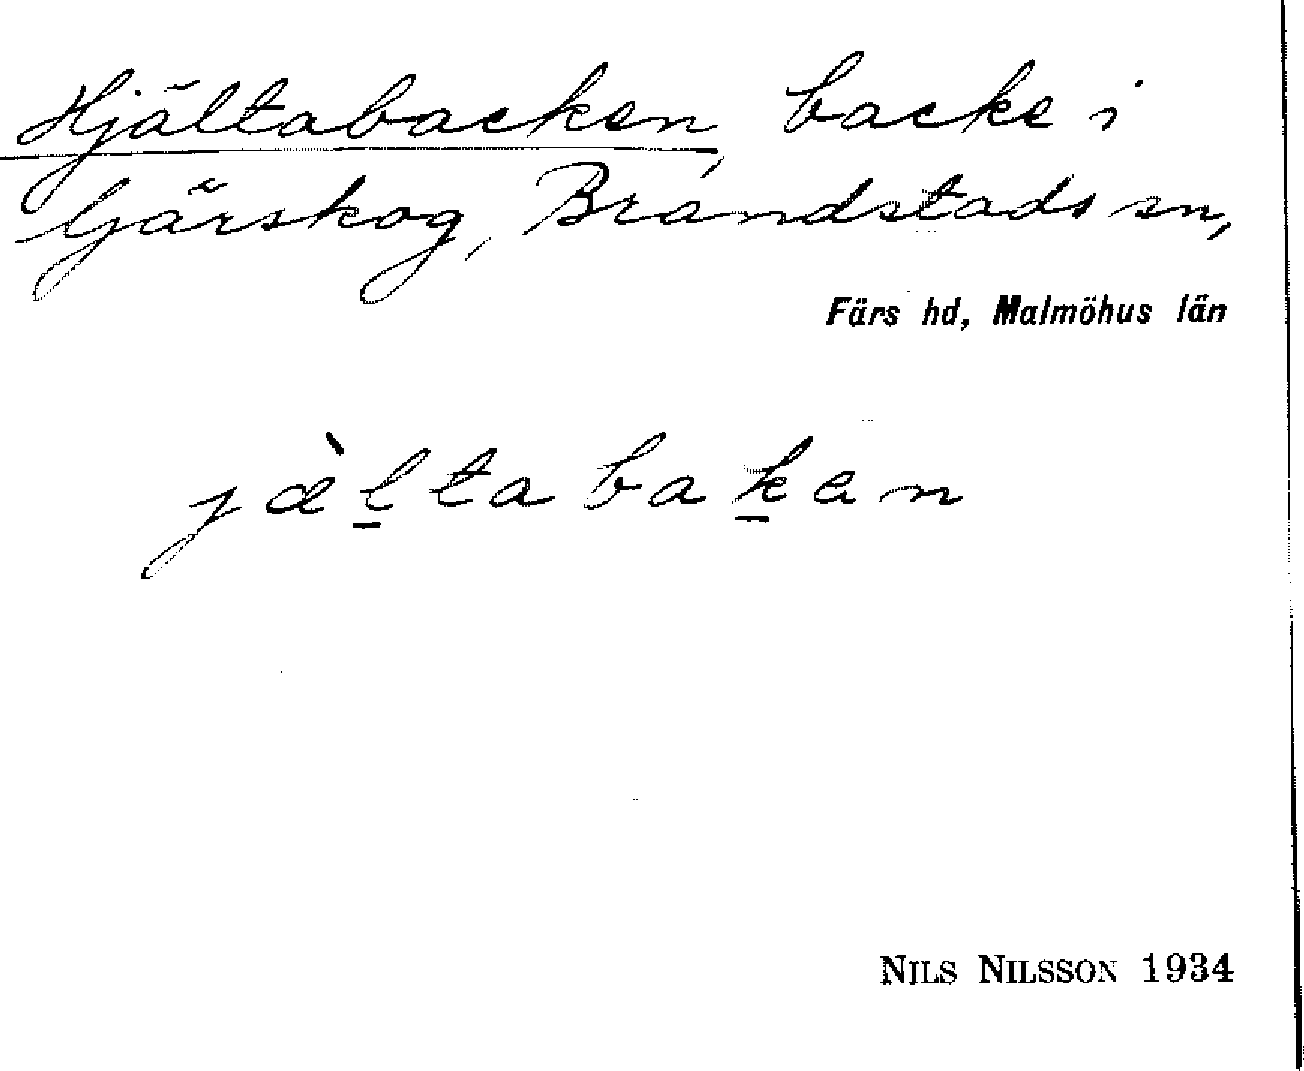 Hjältabacken, backe i
Gärskog, Brandstads sn,
Färs hd, Malmöhus län
jæ̀l̠tabak̠an
NILS NILSSON 1934